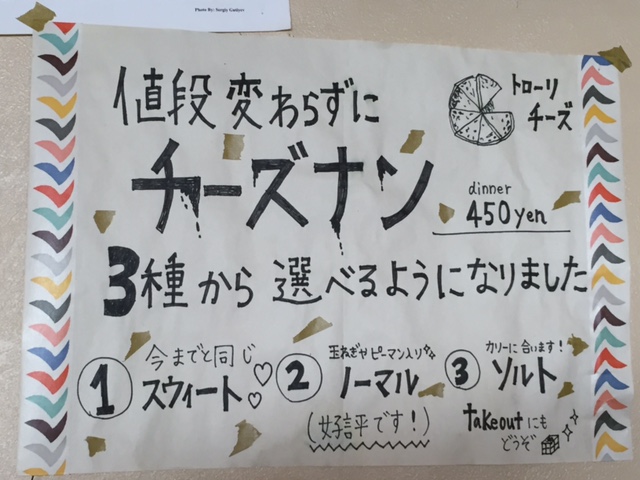 Photo By: Sergiy Gudyev
値段変わらずに
トローリ
チーズ
チーズナン
dinner
450yen
3種から選べるようになりました
今までと同じ
① スウィート♡♡
玉ねぎやピーマン入り
② ノーマル
(好評です!)
カリーに合います!
③ ソルト
takeoutにも
どうぞ